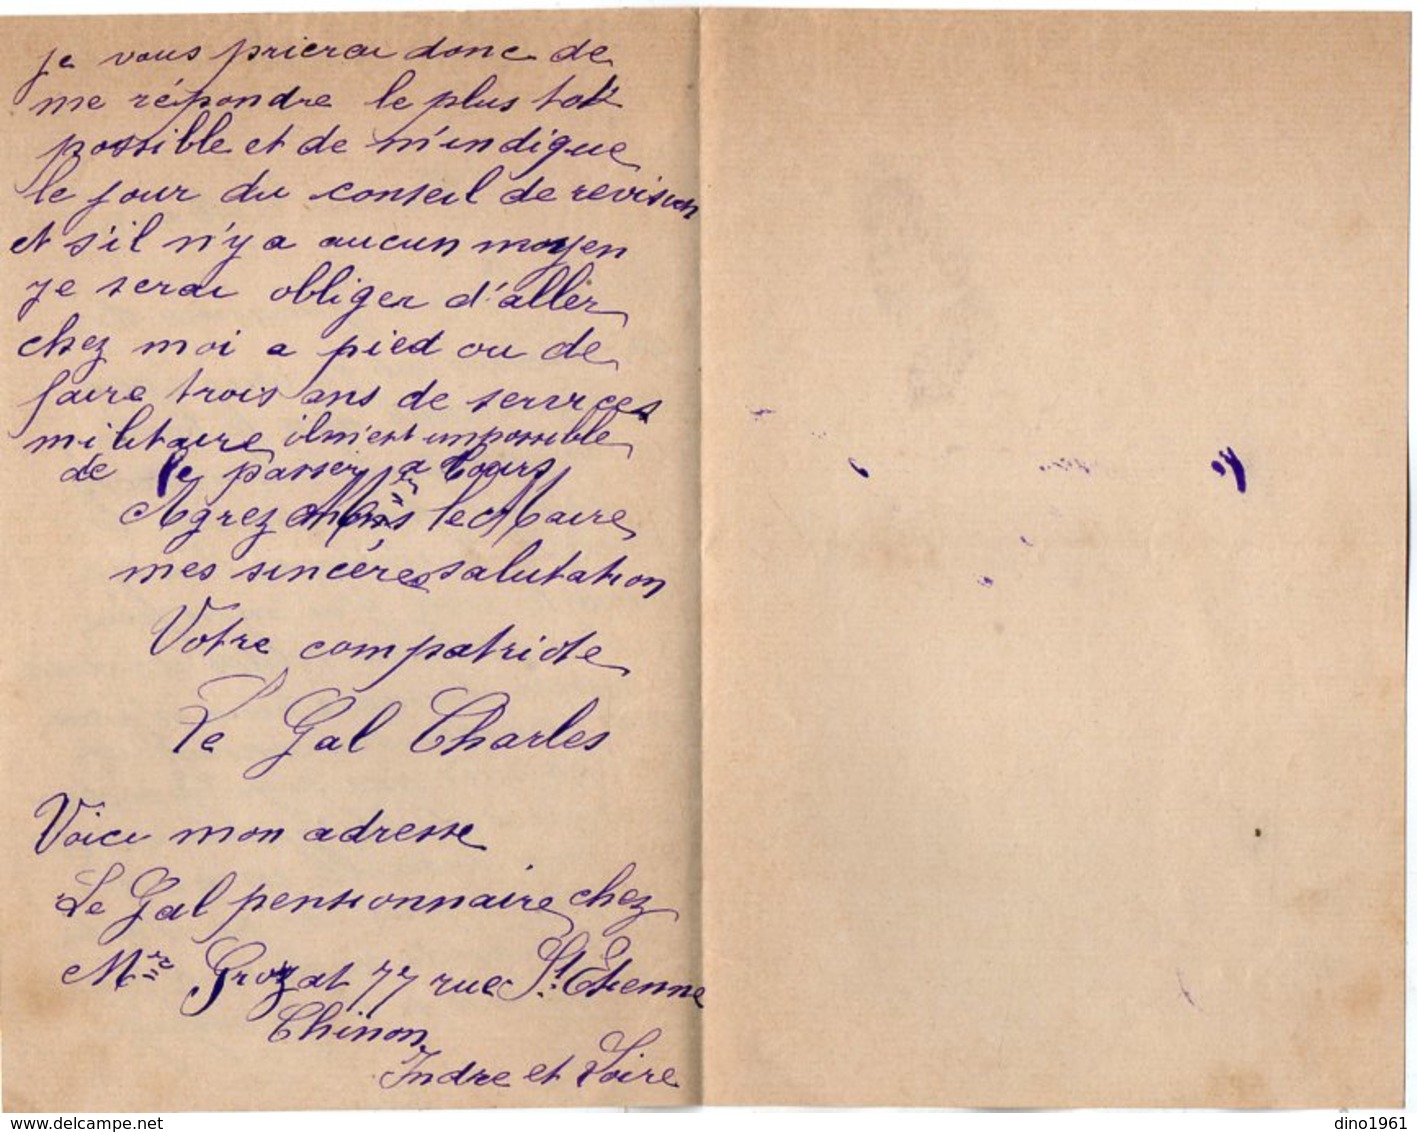 je vous prierai donc de
me répondre le plus tot
possible et de m'indique
le jour du conseil de revision
et s'il n'y a aucun moyen
je serai obliger d'aller
chez moi a pied ou de
faire trois ans de services
militaire il m'est impossible
de le passer a Tours
Agrez le Maire
mes sincéres salutation
Votre compatriote
Le Gal Charles
Voici mon adresse
Le Gal pensionnaire chez
Mre Grozat 77 rue St. Etienne
Chinon
Indre et Loire
www.delcampe.net
dino1961